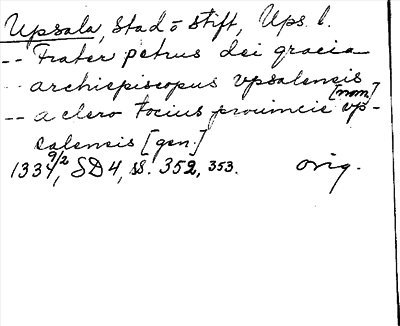 Upsala, Stad o Stift, Ups. l.
-- Frater petrus dei gracia
-- archiepiscopus vpsalensis [nom]
-- a clero tocius prouincie vp-
salensis [gen.]
1334 9/2, SD4, ss. 352, 353. orig.